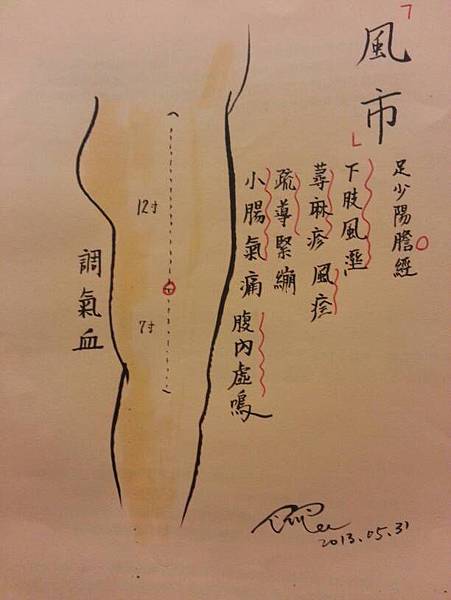 風市
足少陽膽經
下肢風溼
蕁麻疹 風疹
疏導緊繃
小腸氣痛 腹內虛鳴
調氣血
12寸
7寸
2013.05.31